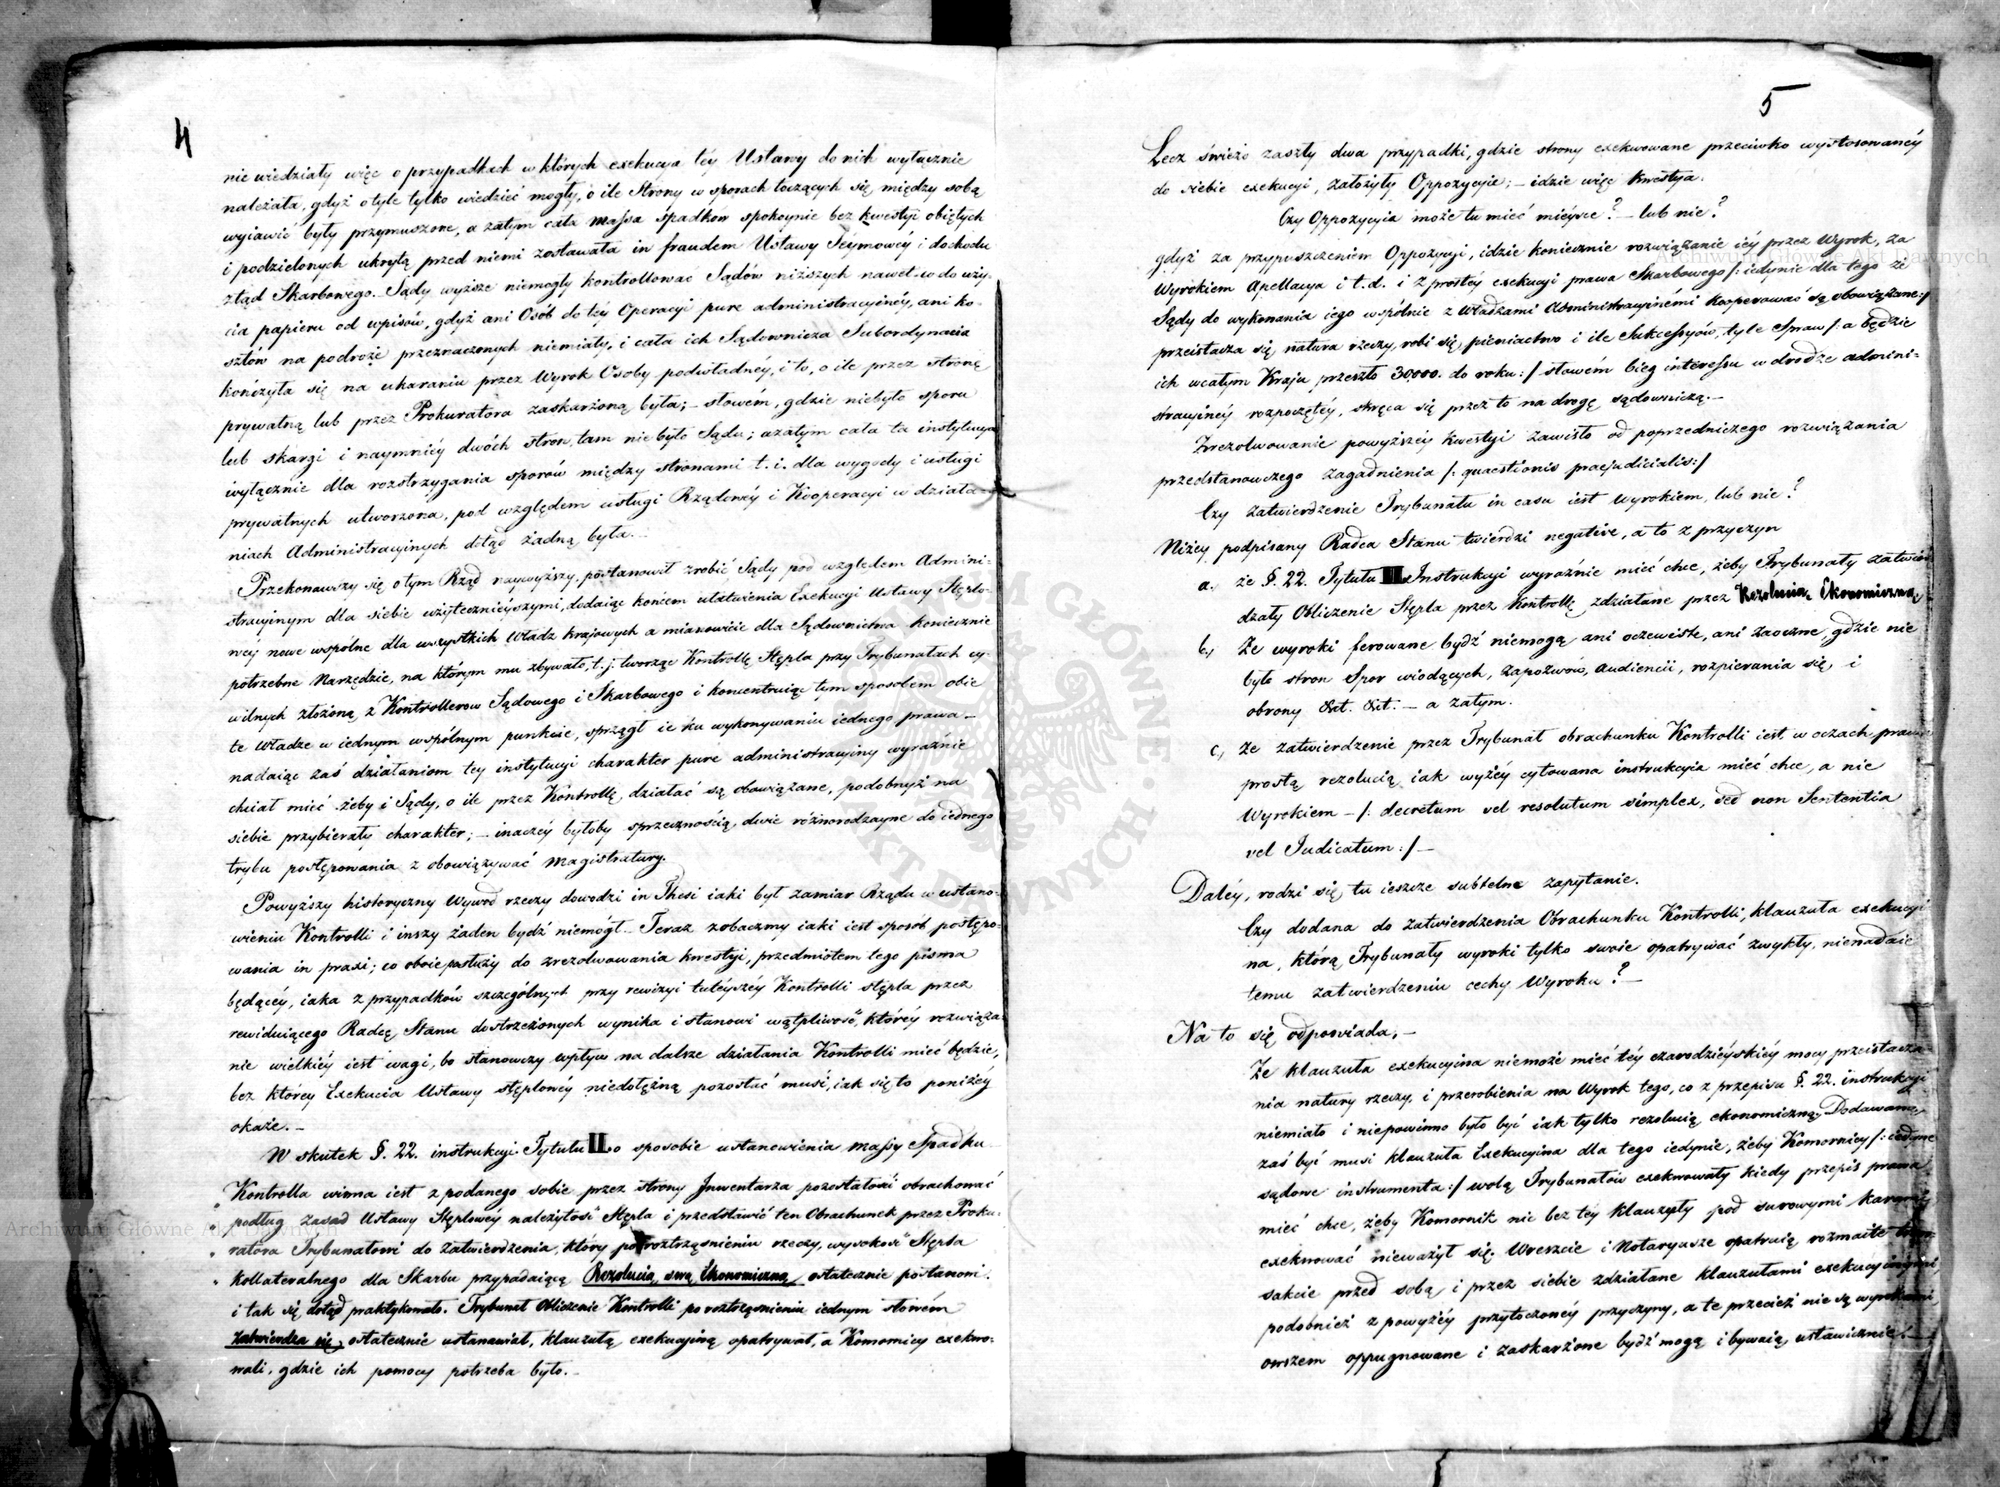 4
nie wiedziały więc o przypadkach w których exekucya téy Ustawy do nich wyłącznie
należała, gdyż o tyle tylko wiedzieć mogły, o ile Strony w sporach toczących się, między sobą
wyiawić były przymuszone, a zatym cała massa spadków spokoynie bez kwestyi obiętych
i podzielonych ukrytą przed niemi zostawała in fraudem Ustawy Seymowéy i dochodu
Skarbowego. Sądy wyższe niemogły kontrollować Sądów niższych nawet w do uży-
cia papieru od wpisów, gdyż ani Osób do téy Operacyi pure administracyinéy, ani ko-
sztów na podróże przeznaczonych niemiały, i cała ich Sądownicza Subordynacia
kończyła się na ukaraniu przez Wyrok Osoby podwładnéy, i to, o ile przez stronę
prywatną lub przez Prokuratora zaskarżoną była; – słowem, gdzie niebyło sporu
lub skargi i naymniéy dwóch stron, tam nie było Sądu; a zatym cała ta instytucya
wyłącznie dla rozstrzygania sporów między stronami t. i. dla wygody i usługi
prywatnych utworzona, pod względem usługi Rządowéy i Kooperacyi w działa-
niach Administracyinych dotąd żadną była.
Przekonawszy się o tym Rząd naywyższy, postanowił zrobić Sądy pod względem Admini-
stracyinym dla siebie użytecznieyszymi, dodaiąc końcem ułatwienia Exekucyi Ustawy Stęplo-
wey nowe wspólne dla wszystkich Władz krajowych a mianowicie dla Sądownictwa koniecznie
potrzebne Narzędzie, na którym mu zbywało, t. j. tworząc Kontrollę Stępla przy Trybunałach cy-
wilnych złożoną z Kontrollerów Sądowego i Skarbowego i koncentruiąc tym sposobem obie
te Władze w iednym wspólnym punkcie, sprzągł ie ku wykonywaniu iednego prawa –
nadaiąc zaś działaniom tey instytucyi charakter pure administracyiny wyraźnie
chciał mieć żeby i Sądy, o ile przez Kontrollę, działać są obowiązane, podobnyż na
siebie przybierały charakter; – inaczéy byłoby sprzecznością dwie różnorodzayne do iednego
trybu postępowania z obowiązywać Magistratury.
Powyższy historyczny Wywód rzeczy dowodzi in Thesi iaki był zamiar Rządu w ustano-
wieniu Kontrolli i inszy żaden bydź niemógł. Teraz zobaczmy iaki iest sposób postępo-
wania in praxi; co oboie posłuży do zrezolwowania kwestyi, przedmiotem tego pisma
będącéy, iaka z przypadków szczególnych przy rewizyi tuteyszéy Kontrolli stępla przez
rewiduiącego Radcę Stanu dostrzeżonych wynika i stanowi wątpliwość, któréy rozwiąza-
nie wielkiéy iest wagi, bo stanowczy wpływ na dalsze działania Kontrolli mieć będzie,
bez któréy Exekucia Ustawy stęplowéy niedołężną pozostać musi, iak się to poniżéy
okaże. –
W skutek §. 22. instrukcyi. Tytułu II. o sposobie ustanowienia massy Spadku
Kontrolla winna iest z podanego sobie przez strony Inwentarza pozostałości obrachować
„ podług zasad Ustawy Stęplowéy należytość Stępla i przedstawić ten Obrachunek przez Proku-
„ ratora Trybunałowi do Zatwierdzenia, który po roztrząśnieniu rzeczy, wysokość Stępla
„ kollateralnego dla Skarbu przypadaiącą Rezolucią swą Ekonomiczną ostatecznie postanowi.
i tak się dotąd praktykowało. Trybunał Obliczenie Kontrolli po roztrząśnieniu iednym słowém
Zatwierdza się, ostatecznie ustanawiał, klauzulą exekucyiną opatrywał, a Komornicy exekwo-
wali, gdzie ich pomocy potrzeba było. –
5
Lecz świeżo zaszły dwa przypadki, gdzie strony exekwowane przeciwko wystosowanéy
do siebie exekucyi, założyły Oppozycyie; – idzie więc kwestya.
Czy Oppozycyia może tu mieć miéysce? – lub nie?
gdyż za przypuszczeniem Oppozycyi, idzie koniecznie rozwiązanie iéy przez Wyrok, za
Wyrokiem Apellacya i t. d. i z prostéy exekucyi prawa Skarbowego /: iedynie dla tego że
Sądy do wykonania iego wspólnie z Władzami Administracyinémi kooperować są obowiązane :/
przeistacza się, natura rzeczy, robi się, pieniactwo i ile Sukcessyów, tyle Spraw /: a będzie
ich w całym Kraju przeszło 30,000. do roku :/ słowém bieg interessu w drodze admini-
stracyinéy rozpoczętéy, skręca się przez to na drogę sądowniczą. –
Zrezolwowanie powyższéy kwestyi zawisło od poprzedniczego rozwiązania
przedstanowczego zagadnienia /: quaestionis praejudicialis :/
Czy zatwierdzenie Trybunału in casu iest Wyrokiem, lub nie?
Niżéy podpisany Radca Stanu twierdzi negative, a to z przyczyn
a. że §. 22. Tytułu II. Instrukcyi wyraźnie mieć chce, żeby Trybunały zatwier-
dzały Obliczenie Stępla przez Kontrollę zdziałane przez Rezolucią Ekonomiczną,
b., Że wyroki ferowane bydź niemogą, ani oczewiste, ani zaoczne, gdzie nie
było stron Spor wiodących, zapozwów, audiencii, rozpierania się, i
obrony &ct. &ct. – a zatym.
c, Ze zatwierdzenie przez Trybunał obrachunku Kontrolli iest w oczach prawa
prostą rezolucią iak wyżéy cytowana instrukcyia mieć chce, a nie
Wyrokiem – /: decretum vel resolutum simplex, sed non Sententia
vel Iudicatum :/ –
Daléy, rodzi się, tu ieszcze subtelne zapytanie.
Czy dodana do zatwierdzenia Obrachunku Kontrolli, klauzuła exekucyi
na, którą Trybunały wyroki tylko swoie opatrywać zwykły, nienadaie
temu zatwierdzeniu cechy Wyroku? –
Na to się odpowiada, –
Ze klauzuła exekucyina niemoże mieć téy czarodzieyskiéy mocy przeistacza-
nia natury rzeczy, i przerobienia na Wyrok tego, co z przepisu §. 22. instrukcyi
niemiało i niepowinno było być iak tylko rezolucią ekonomiczną. Dodawaną
zaś być musi klauzuła Exekucyina dla tego iedynie, żeby Komornicy /: iedyne
sądowe instrumenta :/ wolą Trybunałów exekwowały kiedy przepis prawa
mieć chce, żeby Komornik nic bez téy klauzuły pod surowymi karami
exekwować nieważył się. Wreszcie i Notaryusze opatruią rozmaite tran-
sakcie przed sobą i przez siebie zdziałane klauzułami exekucyinymi,
podobnież z powyżéy przytoczonéy przyczyny, a te przecież nie są wyrokami,
owszem oppugnowane i zaskarżone bydź mogą i bywaią ustawicznie. –
Archiwum Główne Akt Dawnych